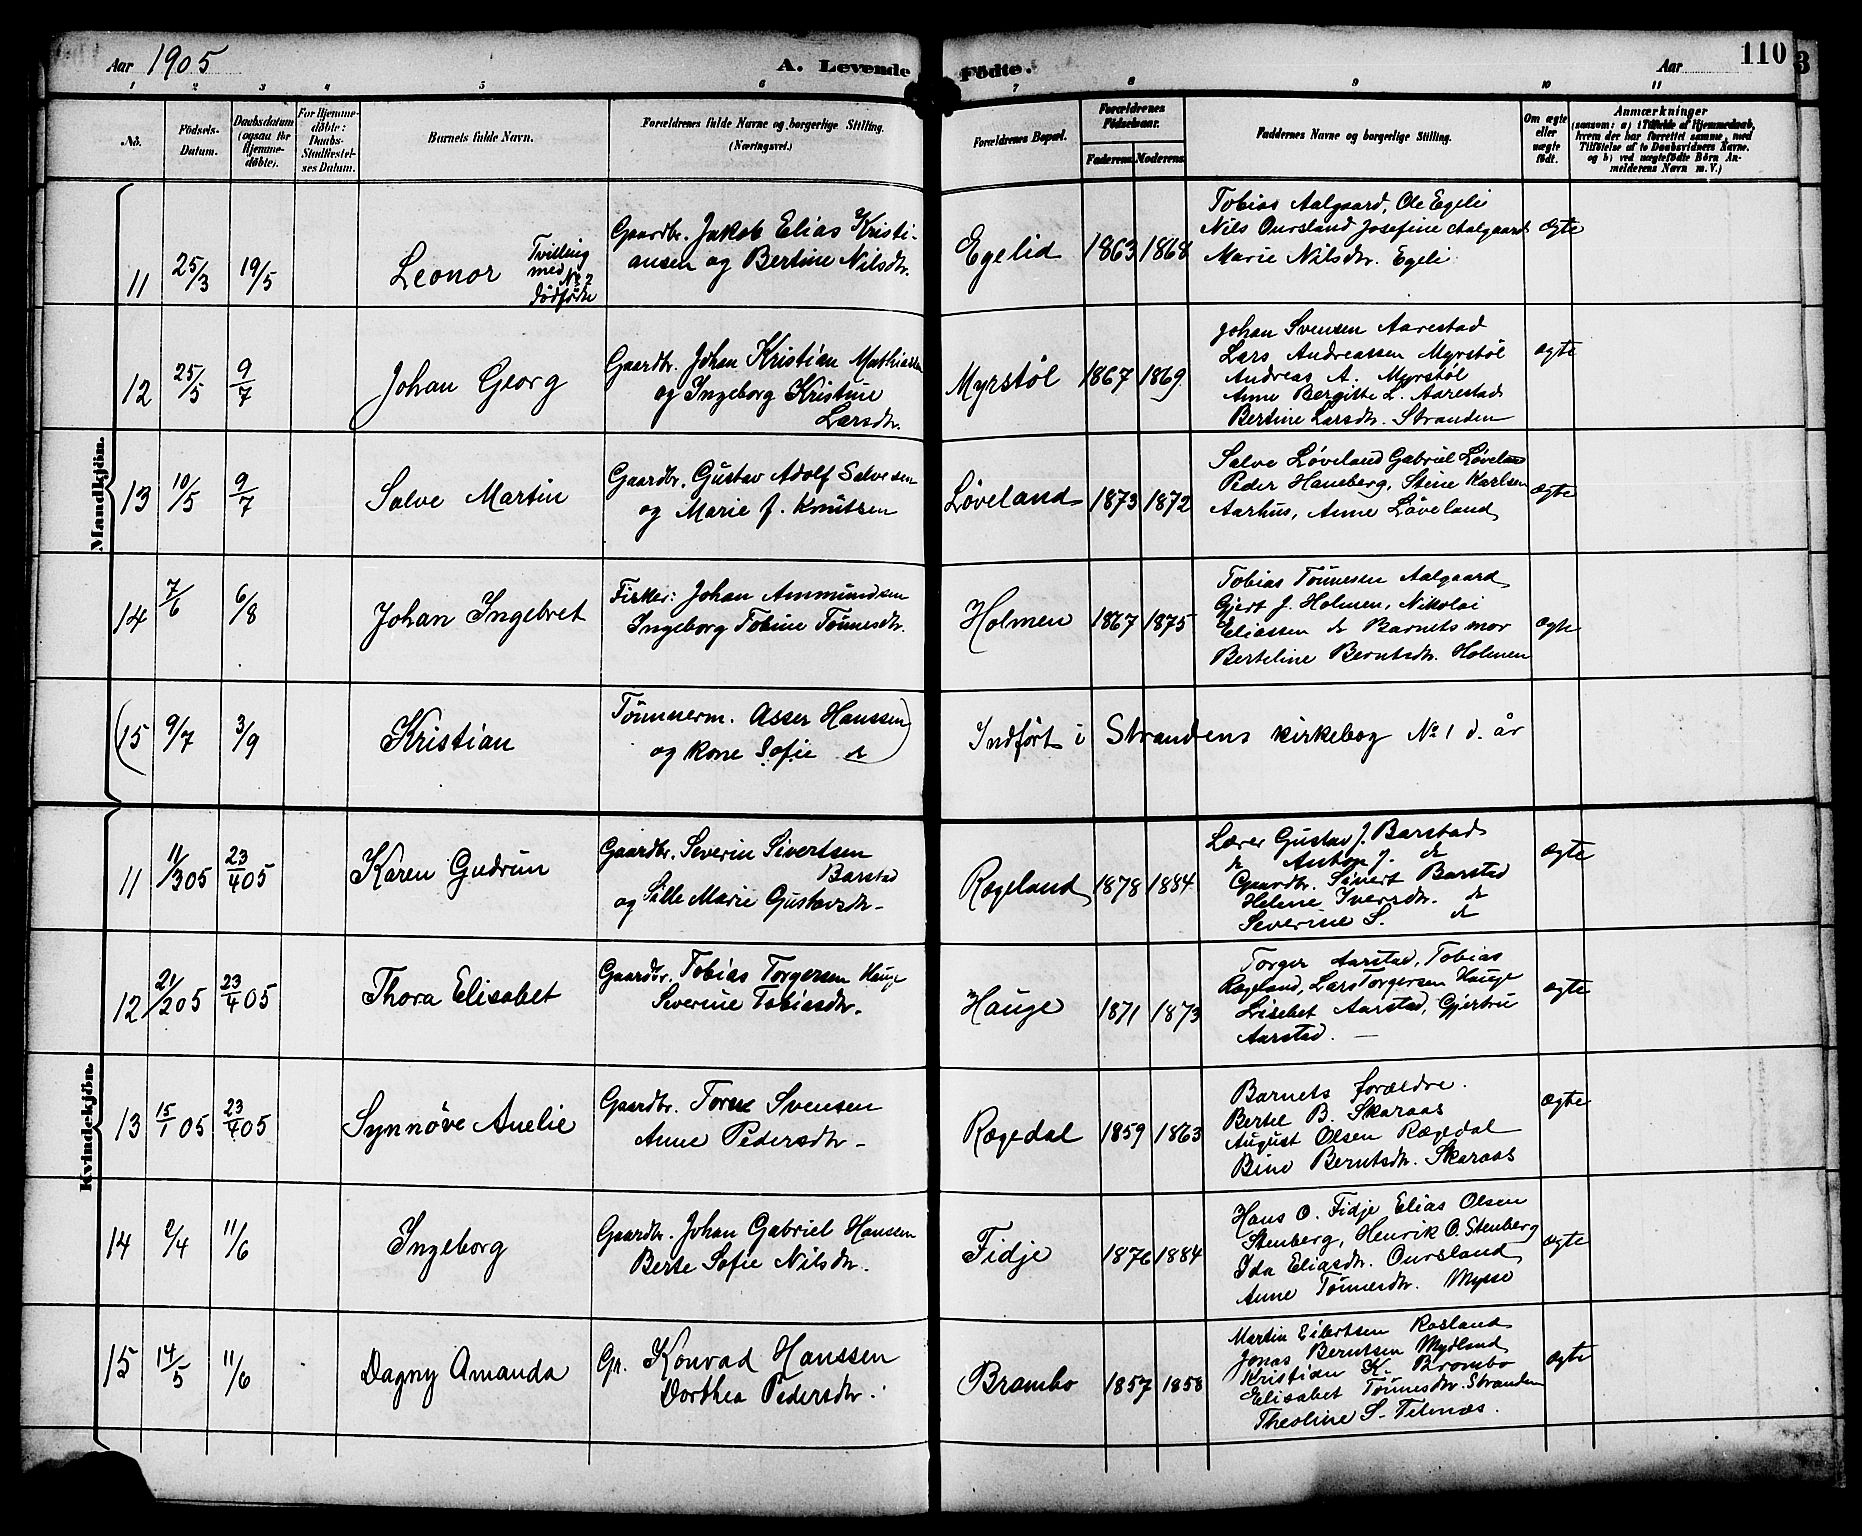 Aar 1905
A. Levende Födte.
Aar
110
3
1 2 3 4 5 6 7 8 9 10 11
No.
Födsels-
Datum.
Daabsdatum
(ogsaa for
Hjemme-
döbte).
For Hjemme-
döbte:
Daabs-
Stadfæstel-
ses Datum.
Barnets fulde Navn.
Forældrenes fulde Navne og borgerlige Stilling.
(Næringsvei.)
Forældrenes Bopæl.
Forældrenes
Födselsaar.
Faderens. Moderens.
Faddernes Navne og borgerlige Stilling.
Om ægte
eller
uægte
födt.
Anmærkninger
(saasom: a) i Tilfælde af Hjemmedaab,
hvem der har forrettet samme, med
Tilföielse af to Daabsvidners Navne.
og b) ved uægtefödte Börn An-
melderens Navn m. V.)
Mandkjön.
11 25/3 19/5 Leonor
Tvilling
med
dødfødte
Gaardbr. Jakob Elias Kristi-
ansen og Bertine Nilsdtr.
Egelid 1863 1868
Tobias Aalgaard, Ole Egeli
Nils Oursland Josefine Aalgaard
Marie Nilsdtr. Egeli
ægte
12 25/5 9/7 Johan Georg
Gaardbr. Johan Kristian Mathiassen
og Ingeborg Kristine
Larsdtr.
Myrstøl 1867 1869
Johan Svensen Aarestad
Lars Andreassen Myrstøl
Andreas A. Myrstøl
Anne Bergitte L. Aarestad
Bertine Larsdtr. Stranden
ægte
13 10/5 9/7 Salve Martin
Gaardbr. Gustav Adolf Salvesen
og Marie J. Knutsen
Løveland 1873 1872
Salve Løveland Gabriel Løveland
Peder Haneberg, Stine Karlsen
Aarhus, Anne Løveland
ægte
14 7/6 6/8 Johan Ingebret
Fisker: Johan Ammundsen
Ingeborg Tobine Tönnesdtr.
Holmen 1867 1875
Tobias Tönnesen Aalgaard
Gjert J. Holmen, Nikolai
Eliassen do Barnets mor
Berteline Berntsdtr. Holmen
ægte
(15 9/7 3/9 Kristian
Tömmerm. Asser Hanssen
og kone Sofie do)
Indført i Strandens kirkebog No 1 d. år
Kvindekjön.
11 11/3 05 23/4 05 Karen Gudrun
Gaardbr. Severin Sivertsen
Barstad
og Sille Marie Gustavsdtr.
Rægeland 1878 1884
Lærer Gustav J. Barstad
do Anton J. do
Gaardbr. Sivert Barstad
Helene Iversdtr. do
Severine S. do
ægte
12 21/2 05 23/4 05 Thora Elisabet
Gaardbr. Tobias Torgersen Hauge
Severine Tobiasdtr.
Hauge 1871 1873
Torger Aarstad, Tobias
Rægeland, Lars Torgersen Hauge
Lisebet Aarstad, Gjertru
Aarstad. —
ægte
13 15/1 05 23/4 05 Synnöve Anelie
Gaardbr. Svensen
Anne Pedersdtr.
Rægedal 1859 1863
Barnets forældre.
Bertel B. Skaraas
August Olsen Rægedal
Bine Berntsdtr. Skaraas
ægte
14 2/4 11/6 Ingeborg
Gaardbr. Johan Gabriel Hanssen
Berte Sofie Nilsdtr.
Fidje 1876 1884
Hans O. Fidje Elias Olsen
Stenberg, Henrik O. Stenberg
Ida Eliasdtr. Oursland
Anne Tönnesdtr.
ægte
15 14/5 11/6 Dagny Amanda
Gr. Konvad Hanssen
Dorthea Pedersdtr.
Brambo 1857 1858
Martin Eilertsen Rosland
Jonas Berntsen Mydland
Kristian K. Brombo
Elisabet Tönnesdtr. Stranden
Theoline S.
ægte